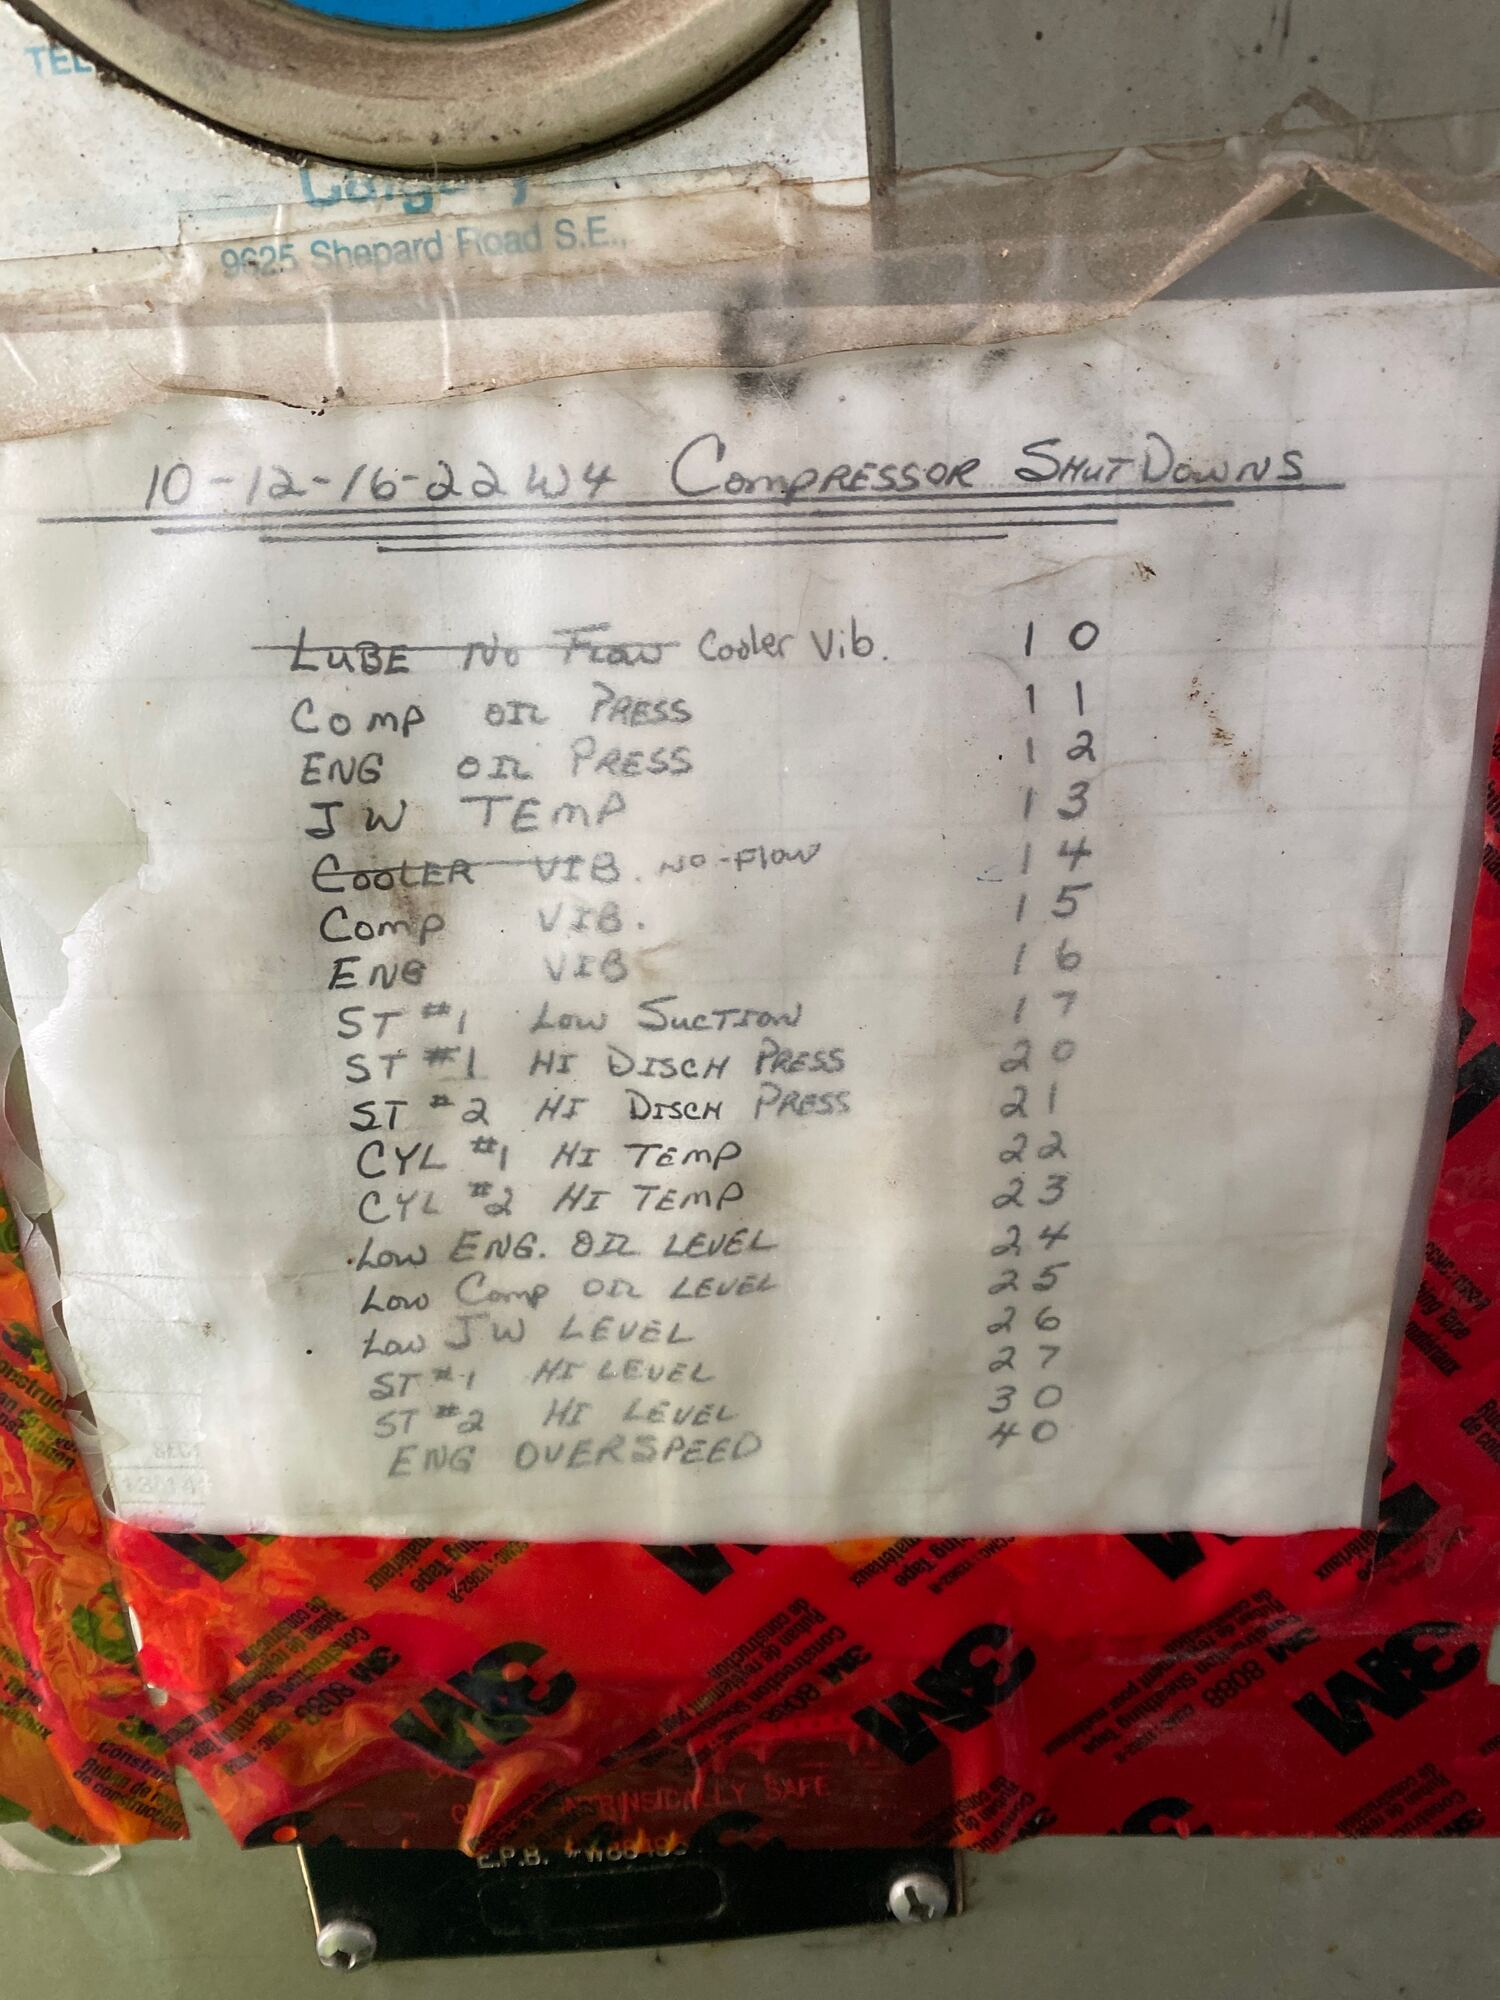 TEL
Calgary
9625 Shepard Road S.E.,
10-12-16-22W4 COMPRESSOR SHUTDOWNS
LUBE NO FLOW Cooler Vib. 10
COMP OIL PRESS 11
ENG OIL PRESS 12
JW TEMP 13
COOLER VIB. NO-FLOW 14
COMP VIB. 15
ENG VIB 16
ST #1 LOW SUCTION 17
ST #1 HI DISCH PRESS 20
ST #2 HI DISCH PRESS 21
CYL #1 HI TEMP 22
CYL #2 HI TEMP 23
LOW ENG. OIL LEVEL 24
LOW COMP OIL LEVEL 25
LOW JW LEVEL 26
ST #1 HI LEVEL 27
ST #2 HI LEVEL 30
ENG OVERSPEED 40
3M
3M
3M
3M 8088
Construction Sheathing Tape
Ruban de revêtement pour
matériaux de construction
CCMC: 11362-R
INTRINSICALLY SAFE
E.P.B.